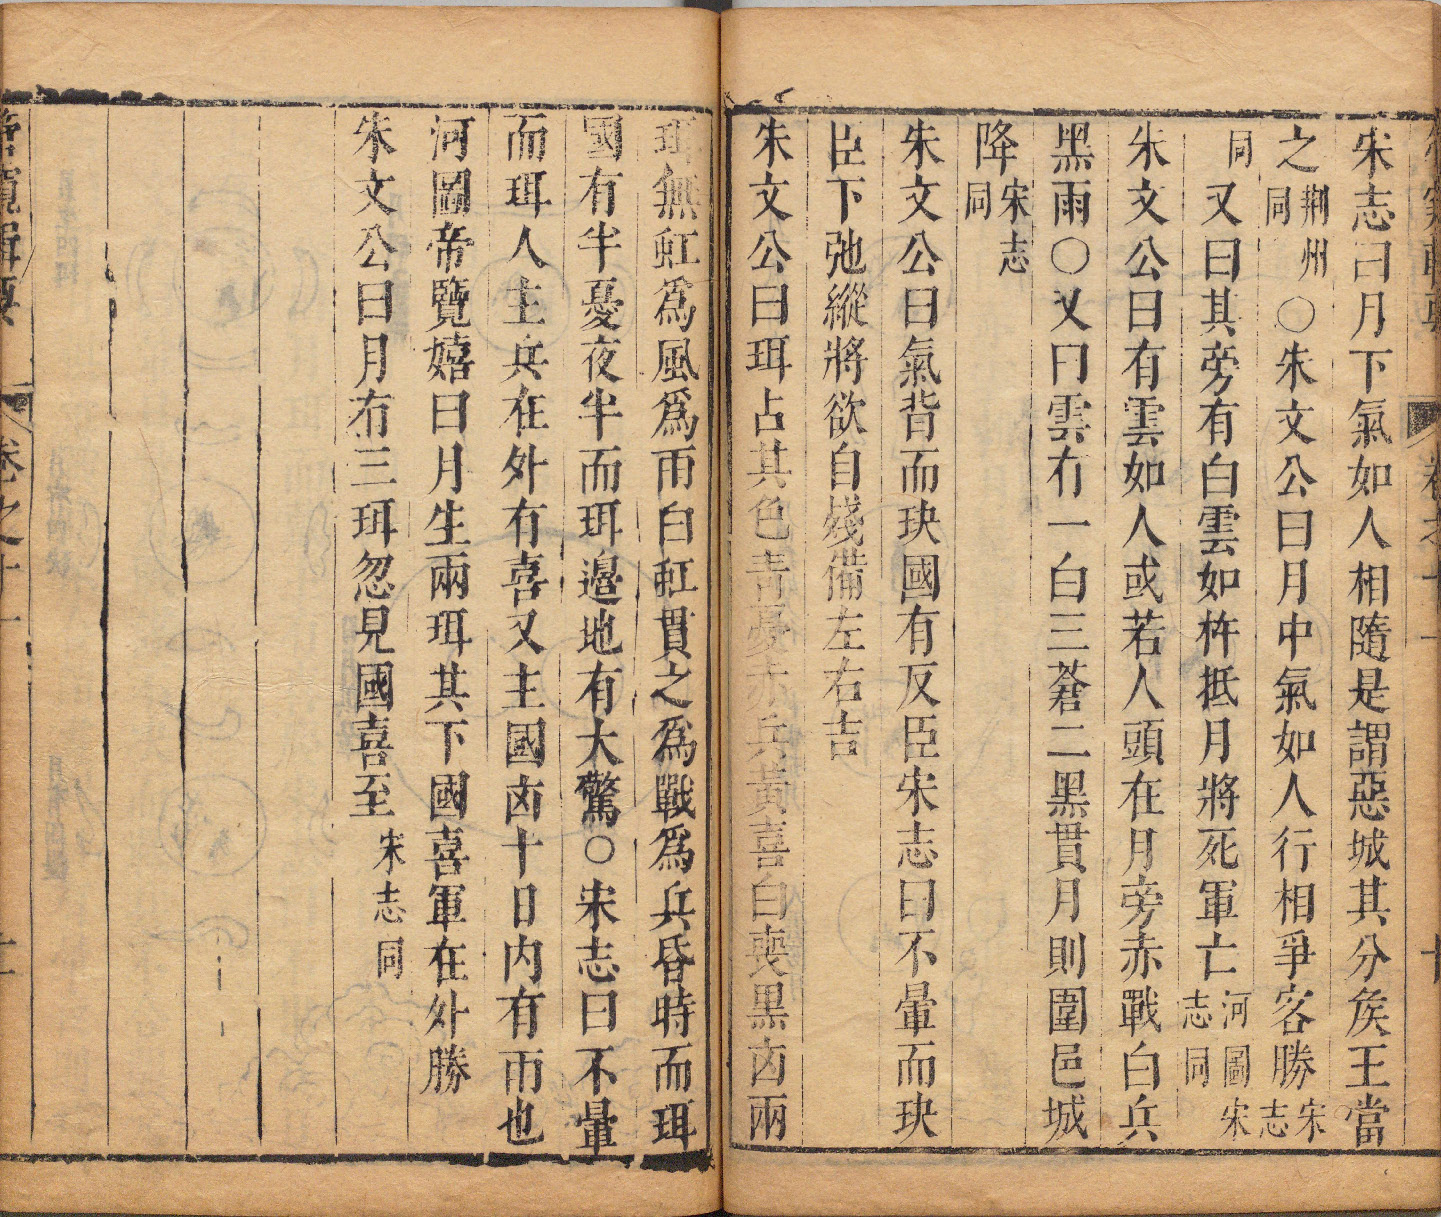 宋志曰月下氣如人相隨是謂惡城其分矦王當
之荆州同○朱文公曰月中氣如人行相爭客勝宋志
同又曰其旁有白雲如杵抵月將死軍亡河圖宋志同
朱文公曰有雲如人或若人頭在月旁赤戰白兵
黑雨○又曰雲有一白三蒼二黑貫月則圍邑城
降宋志同
朱文公曰氣背而玦國有反臣宋志曰不暈而玦
臣下弛縱將欲自殘備左右吉
朱文公曰珥占其色青憂赤兵黃喜白喪黑凶兩
珥無虹爲風爲雨白虹貫之爲戰爲兵昏時而珥
國有半憂夜半而珥邊地有大驚○宋志曰不暈
而珥人主兵在外有喜又主國凶十日内有雨也
河圖帝覽嬉曰月生兩珥其下國喜軍在外勝
朱文公曰月有三珥忽見國喜至宋志同
卷之十一